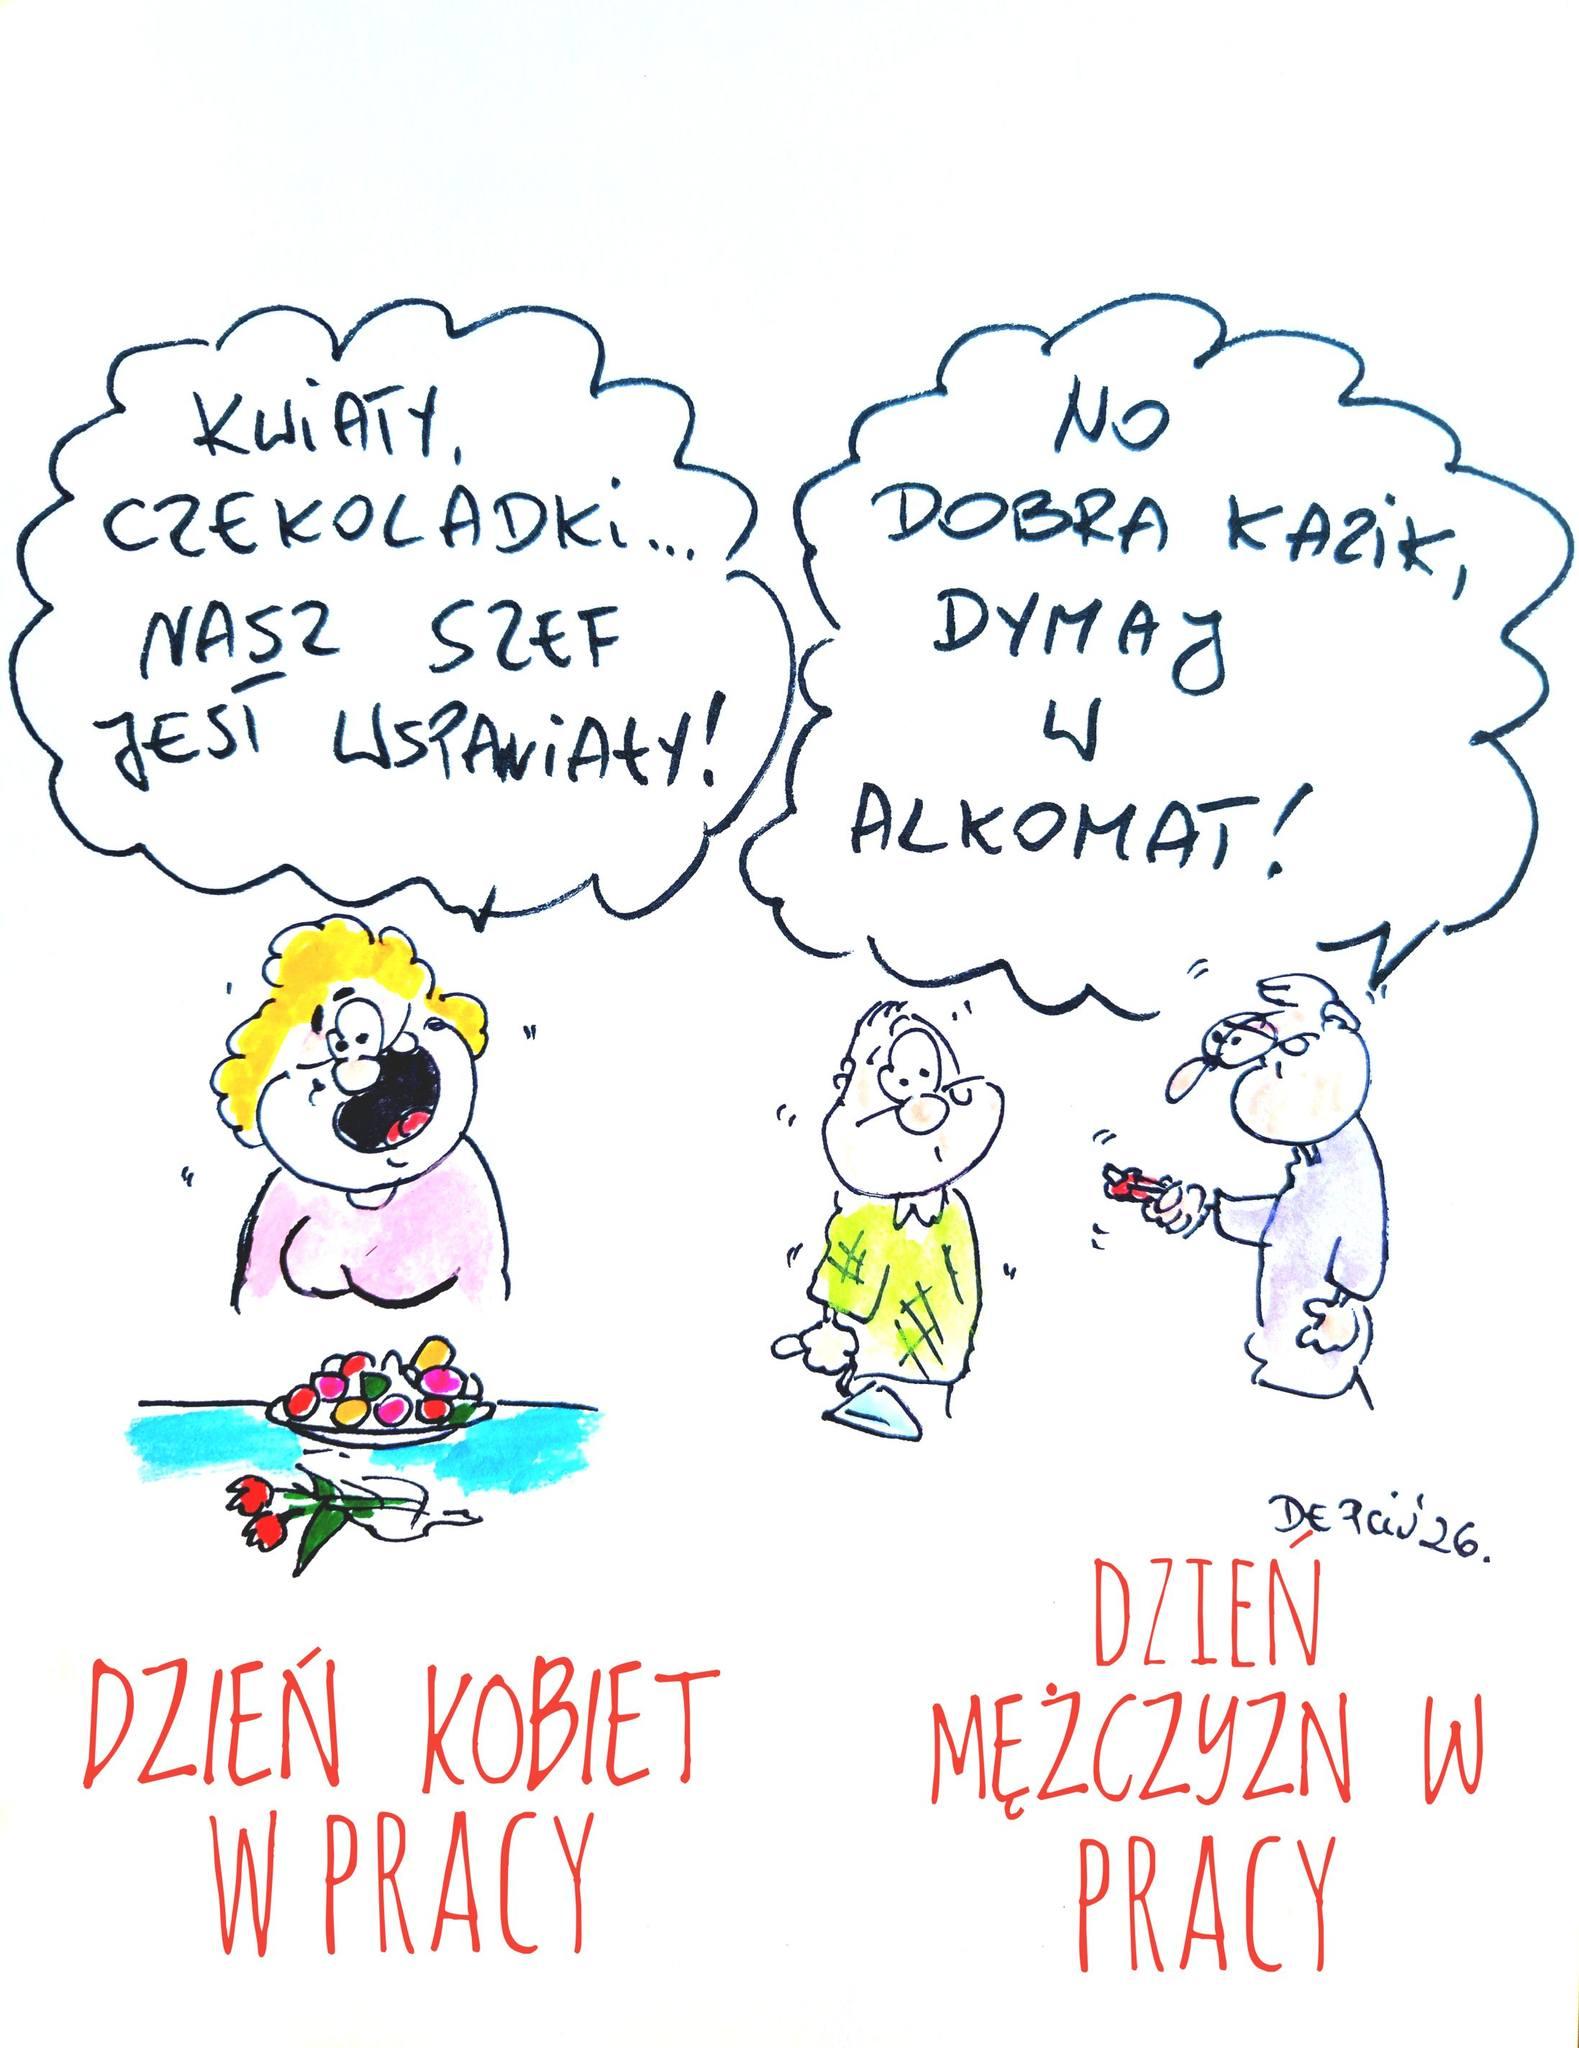 KWIATY,
CZEKOLADKI...
NASZ SZEF
JEST WSPANIAŁY!
NO
DOBRA KAZIK,
DYMAJ
W
ALKOMAT!
'26.
DZIEŃ KOBIET
W PRACY
DZIEŃ
MĘŻCZYZN W
PRACY